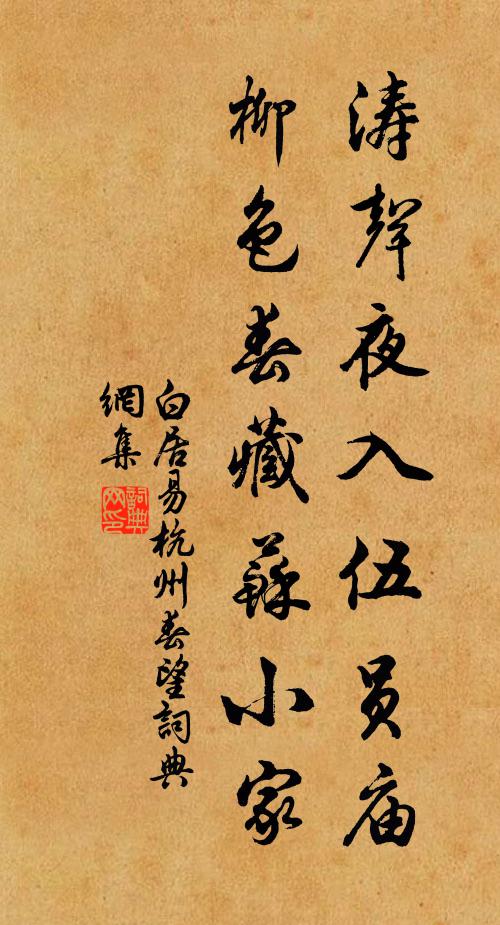 涛聲夜入伍员庙
柳色春藏蘇小家
白居易杭州春望詞典
網集
詞典
网印